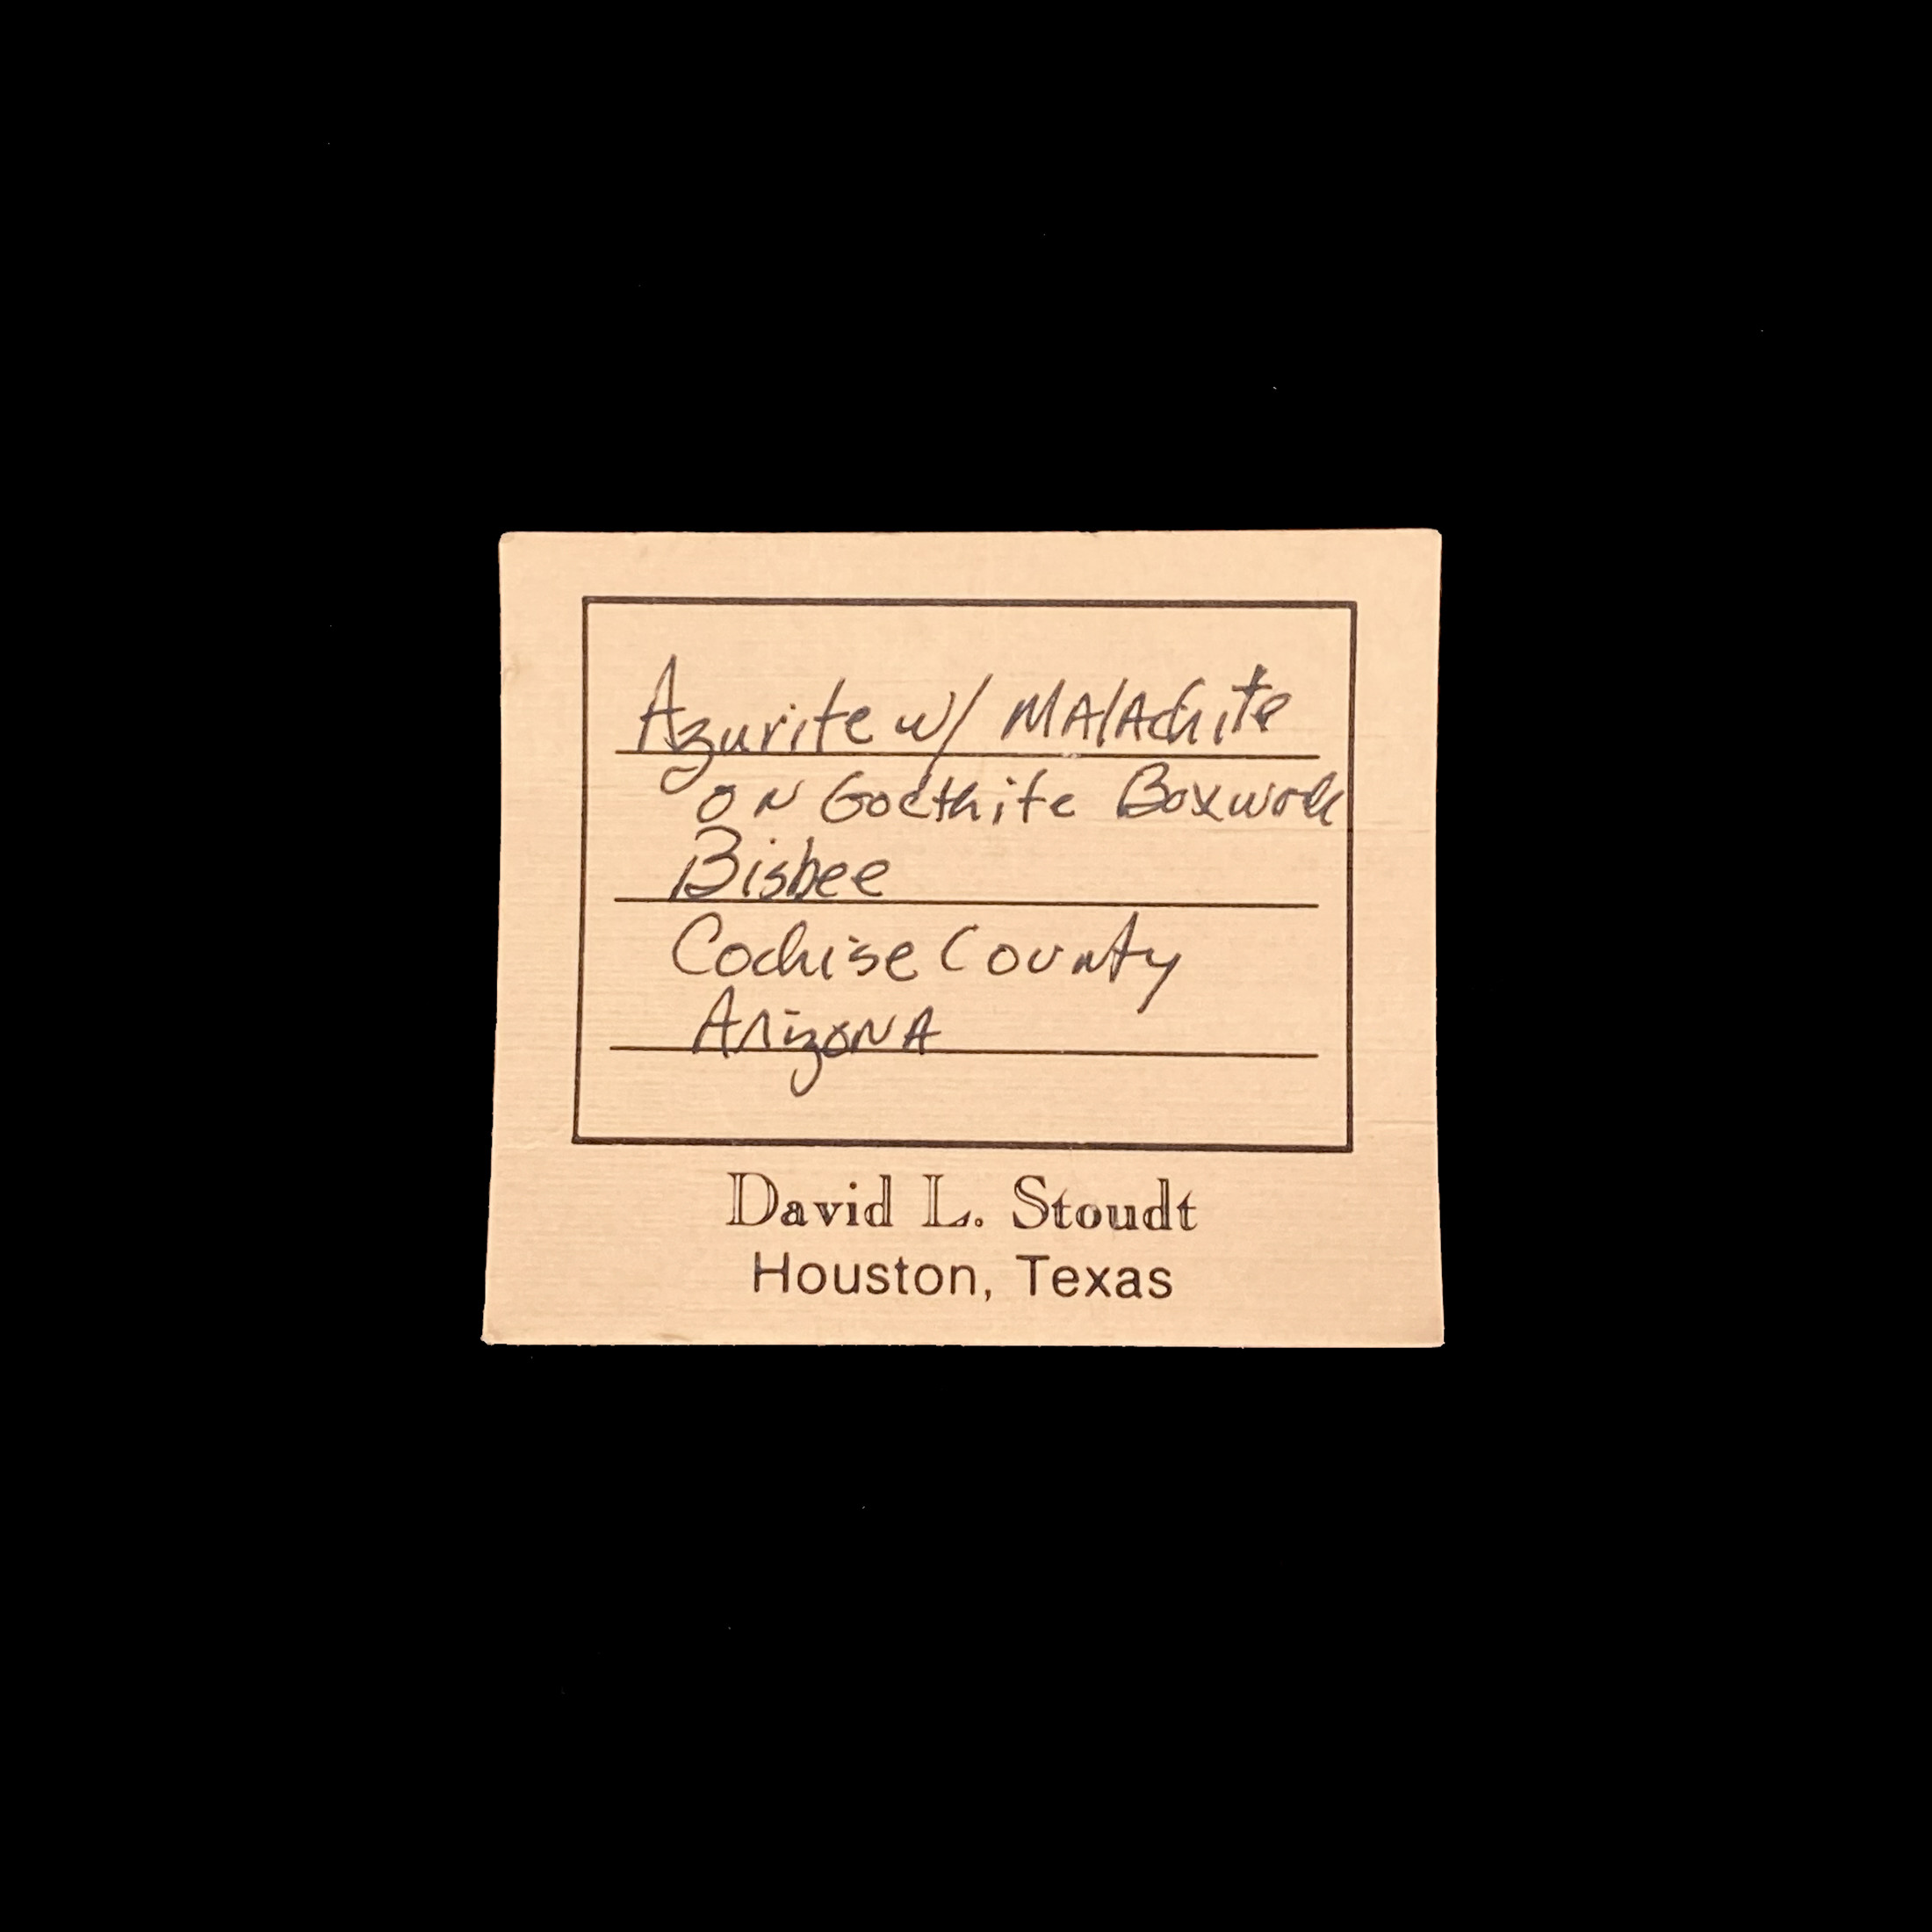 Azurite w/ MAlAchite
ON Goethite Boxwork
Bisbee
Cochise County
ArizoNA
David L. Stoudt
Houston, Texas